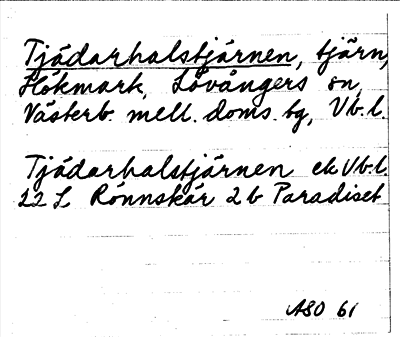 Tjädarhalstjärnen, tjärn,
Hökmark, Lövångers sn,
Västerb. mell. doms. bg, Vb. l.
Tjädarhalstjärnen ek Vb. l.
22 L Rönnskär 2 b Paradiset
ASO 61